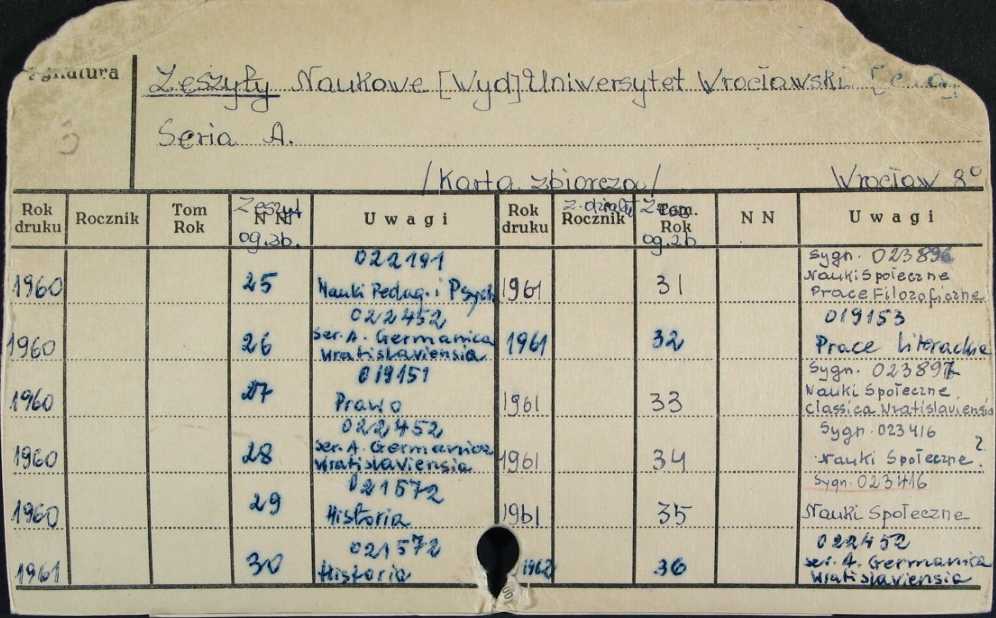 Zeszyty Naukowe [Wyd] Uniwersytet Wrocławski
Seria A.
/Karta zbiorcza/ Wrocław 8°
Rok druku Rocznik Tom Rok Zeszyt NN og.zb. Uwagi Rok druku z. działu Rocznik Tom. Rok og.zb. NN Uwagi
1960 25 022191 Nauki Pedag. i Psych 1961 31 Sygn. 023896 Nauki Społeczne Prace Filozoficzne
1960 26 022452 ser. A. Germanica Wratislaviensia 1961 32 019153 Prace Literackie
1960 27 019151 Prawo 1961 33 Sygn. 023897 Nauki Społeczne. Classica Wratislaviensia
1960 28 022452 ser. A. Germanica Wratislaviensia 1961 34 Sygn. 023416 Nauki Społeczne ?
1960 29 021572 Historia 1961 35 Sygn. 023416 Nauki Społeczne
1961 30 021572 Historia 1962 36 022452 ser. A. Germanica Wratislaviensia